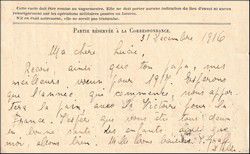 Cette carte doit être remise au vaguemestre. Elle ne doit porter aucune indication du lieu d'envoi ni aucun
renseignement sur les opérations militaires passées ou futures.
S'il en était autrement, elle ne serait pas transmise.
PARTIE RÉSERVÉE À LA CORRESPONDANCE.
31 Décembre 1916
Ma chère Lucie,
Reçois ainsi que ton papa, mes
meilleurs vœux pour 1917. Espérons
que l'année qui commence, nous appor-
tera la paix, avec la Victoire pour la
France. J'espère que vous êtes tous deux
en bonne santé des enfants, ainsi que
moi allons bien.